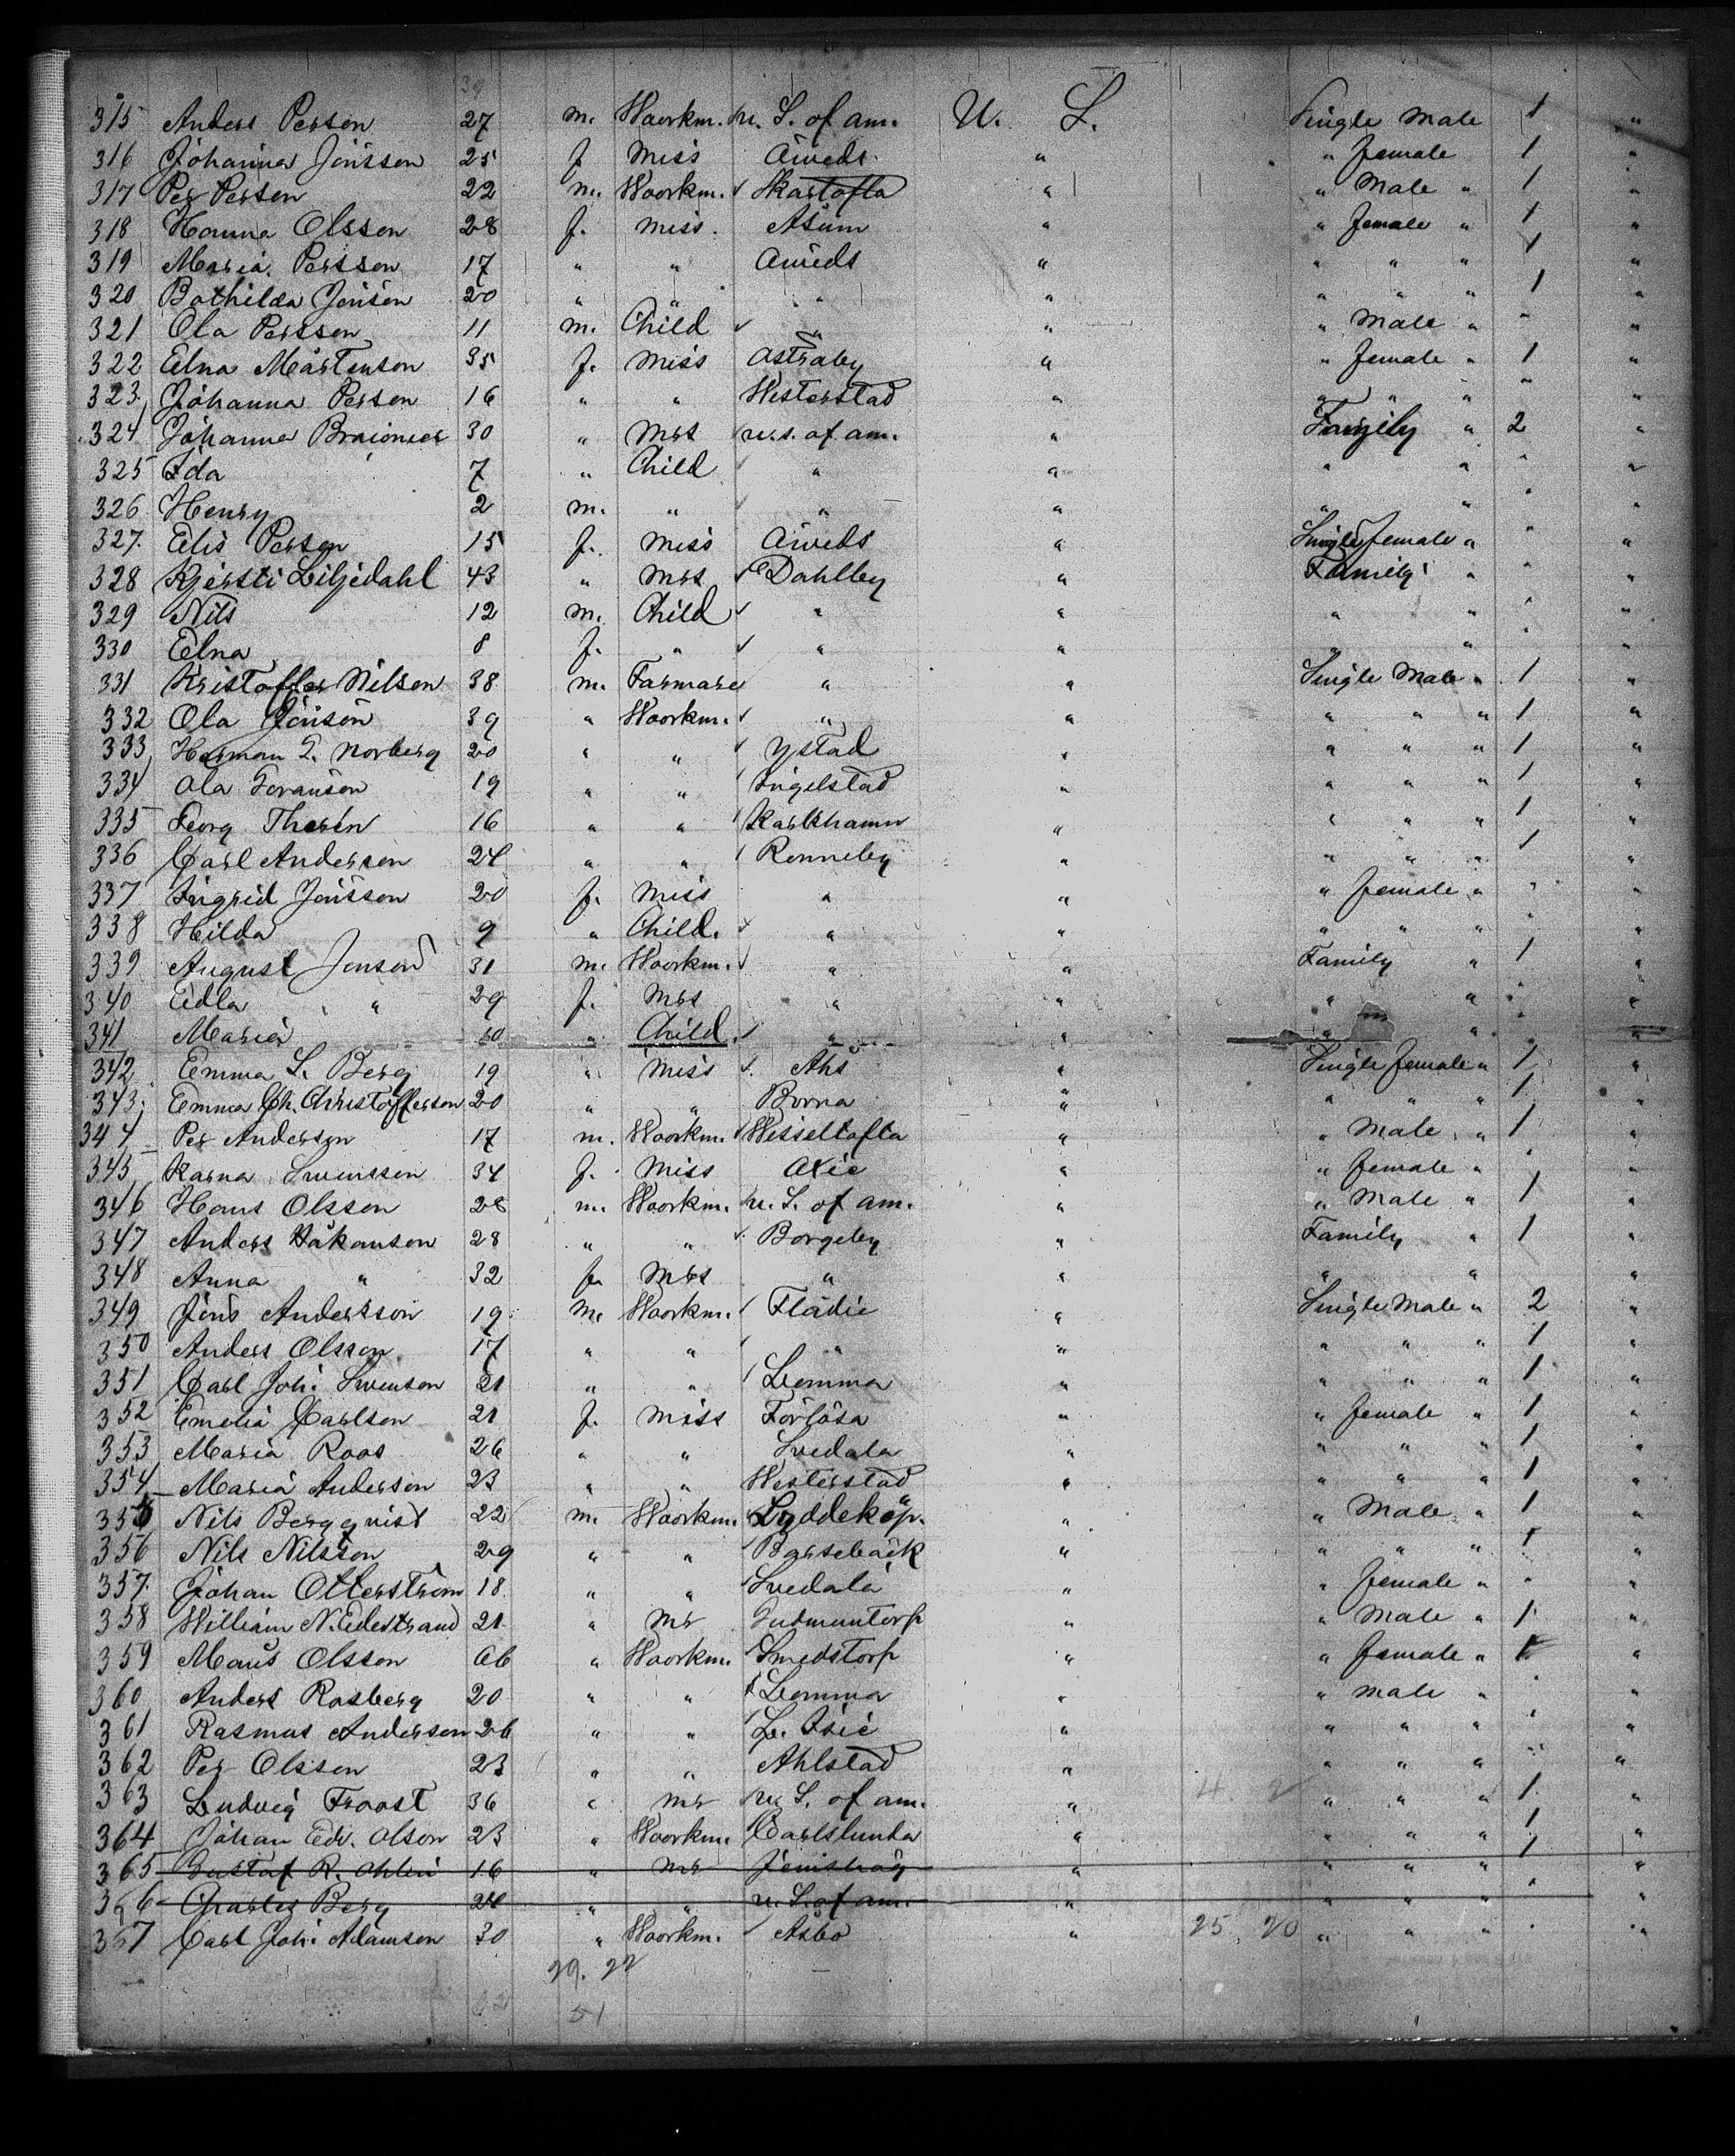 39
315 Anders Person 27 m. Woorkm. u. S. of am. U. S. Single Male 1 "
316 Johanna Jönsson 25 f Miss Öweds " " female 1 "
317 Per Person 22 m. Woorkm. Skartofta " " Male " 1 "
318 Hanna Olsson 28 f. Miss. Asum " " female " 1 "
319 Maria Persson 17 " " Öweds " " " " 1 "
320 Bothilda Jönson 20 " " " " " " " 1 "
321 Ola Persson 11 m. Child " " " Male " " "
322 Elna Mårtenson 35 f. Miss Östraby " " female " 1 "
323 Johanna Person 16 " " Westerstad " " " " " "
324 Johanna 30 " Mrs u. s. of am. " Family " 2 "
325 Ida 7 " Child " " " " " "
326 Henry 2 m. " " " " " " "
327. Elis Person 15 f. Miss Öweds " Single female " " "
328 Kjersti Liljedahl 43 " Mrs Dahlby " Family " " "
329 Nils 12 m. Child " " " " " "
330 Elna 8 f. " " " " " " "
331 Kristoffer Nilson 38 m. Farmare " " Single Male " 1 "
332 Ola Jönson 39 " Woorkm. " " " " " 1 "
333 Herman L. Norberg 20 " " Ystad " " " " 1 "
334 Ola Goranson 19 " " Ingelstad " " " " 1 "
335 Georg Thorén 16 " " Karlshamn " " " " 1 "
336 Carl Anderson 24 " " Ronneby " " " " 1 "
337 Ingrid Jönsson 20 f. Miss " " " female " " "
338 Hilda 9 " Child. " " " " " " "
339 August Jonson 31 m. Woorkm. " " Family " 1 "
340 Edla " 29 f. Mrs " " " " " "
341 Maria 10 " Child. " " " " " "
342 Emma S. Berg 19 " Miss Ahs " Single female " 1 "
343. Emma Ch. Christofferson 20 " " Borna " " " " 1 "
344 Per Anderson 17 m. Woorkm. Wisseltofta " " Male " 1 "
345 Karna Swensson 34 f. Miss Oxie " " female " 1 "
346 Hans Olsson 28 m. Woorkm. u. S. of am. " " Male " 1 "
347 Anders Håkanson 28 " " Borgeby " Family " 1 "
348 Anna " 32 f. Mrs " " " " "
349 Jöns Andersson 19 m. Woorkm. Flädie " Single Male " 2 "
350 Anders Olsson 17 " " " " " " " 1 "
351 Carl Joh. Swenson 21 " " Lomma " " " " 1 "
352 Emelia Carlson 21 f. Miss Förlösa " " female " 1 "
353 Maria Roos 26 " " Svedala " " " " 1 "
354 Maria Anderson 23 " " Westerstad " " " " 1 "
355 Nils Bergqvist 22 m. Woorkm. Lyddeköp. " " Male " 1 "
356 Nils Nilsson 29 " " Barsebäck " " " " 1 "
357. Johan Otterström 18. " " Svedala " " female " " "
358 William N. Edestrand 21. " Mr Gudmuntorp " " Male " 1 "
359 Måns Olsson 66 " Woorkm. Smedstorp " " female " 1 "
360 Anders Rosberg 20 " " Lomma " " male " " "
361 Rasmus Anderson 26 " " L. Isie " " " " " "
362 Per Olsson 23 " " Ahlstad " " " " " "
363 Ludvig Froost 36 " Mr u. S. of am. " 4. 2 " " " 1 "
364 Johan Edv. Olson 23 " Woorkm. Carlslunda " " " " 1 "
365 Gustaf R. Ohlin 16 " Mr Jemshög " " " " 1 "
366 Charles Berg 24 " " u. S. of am. " " " " " "
367 Carl Joh. Adamson 30 " Woorkm. Asbo " 25. 20 " " " " "
29. 22
51